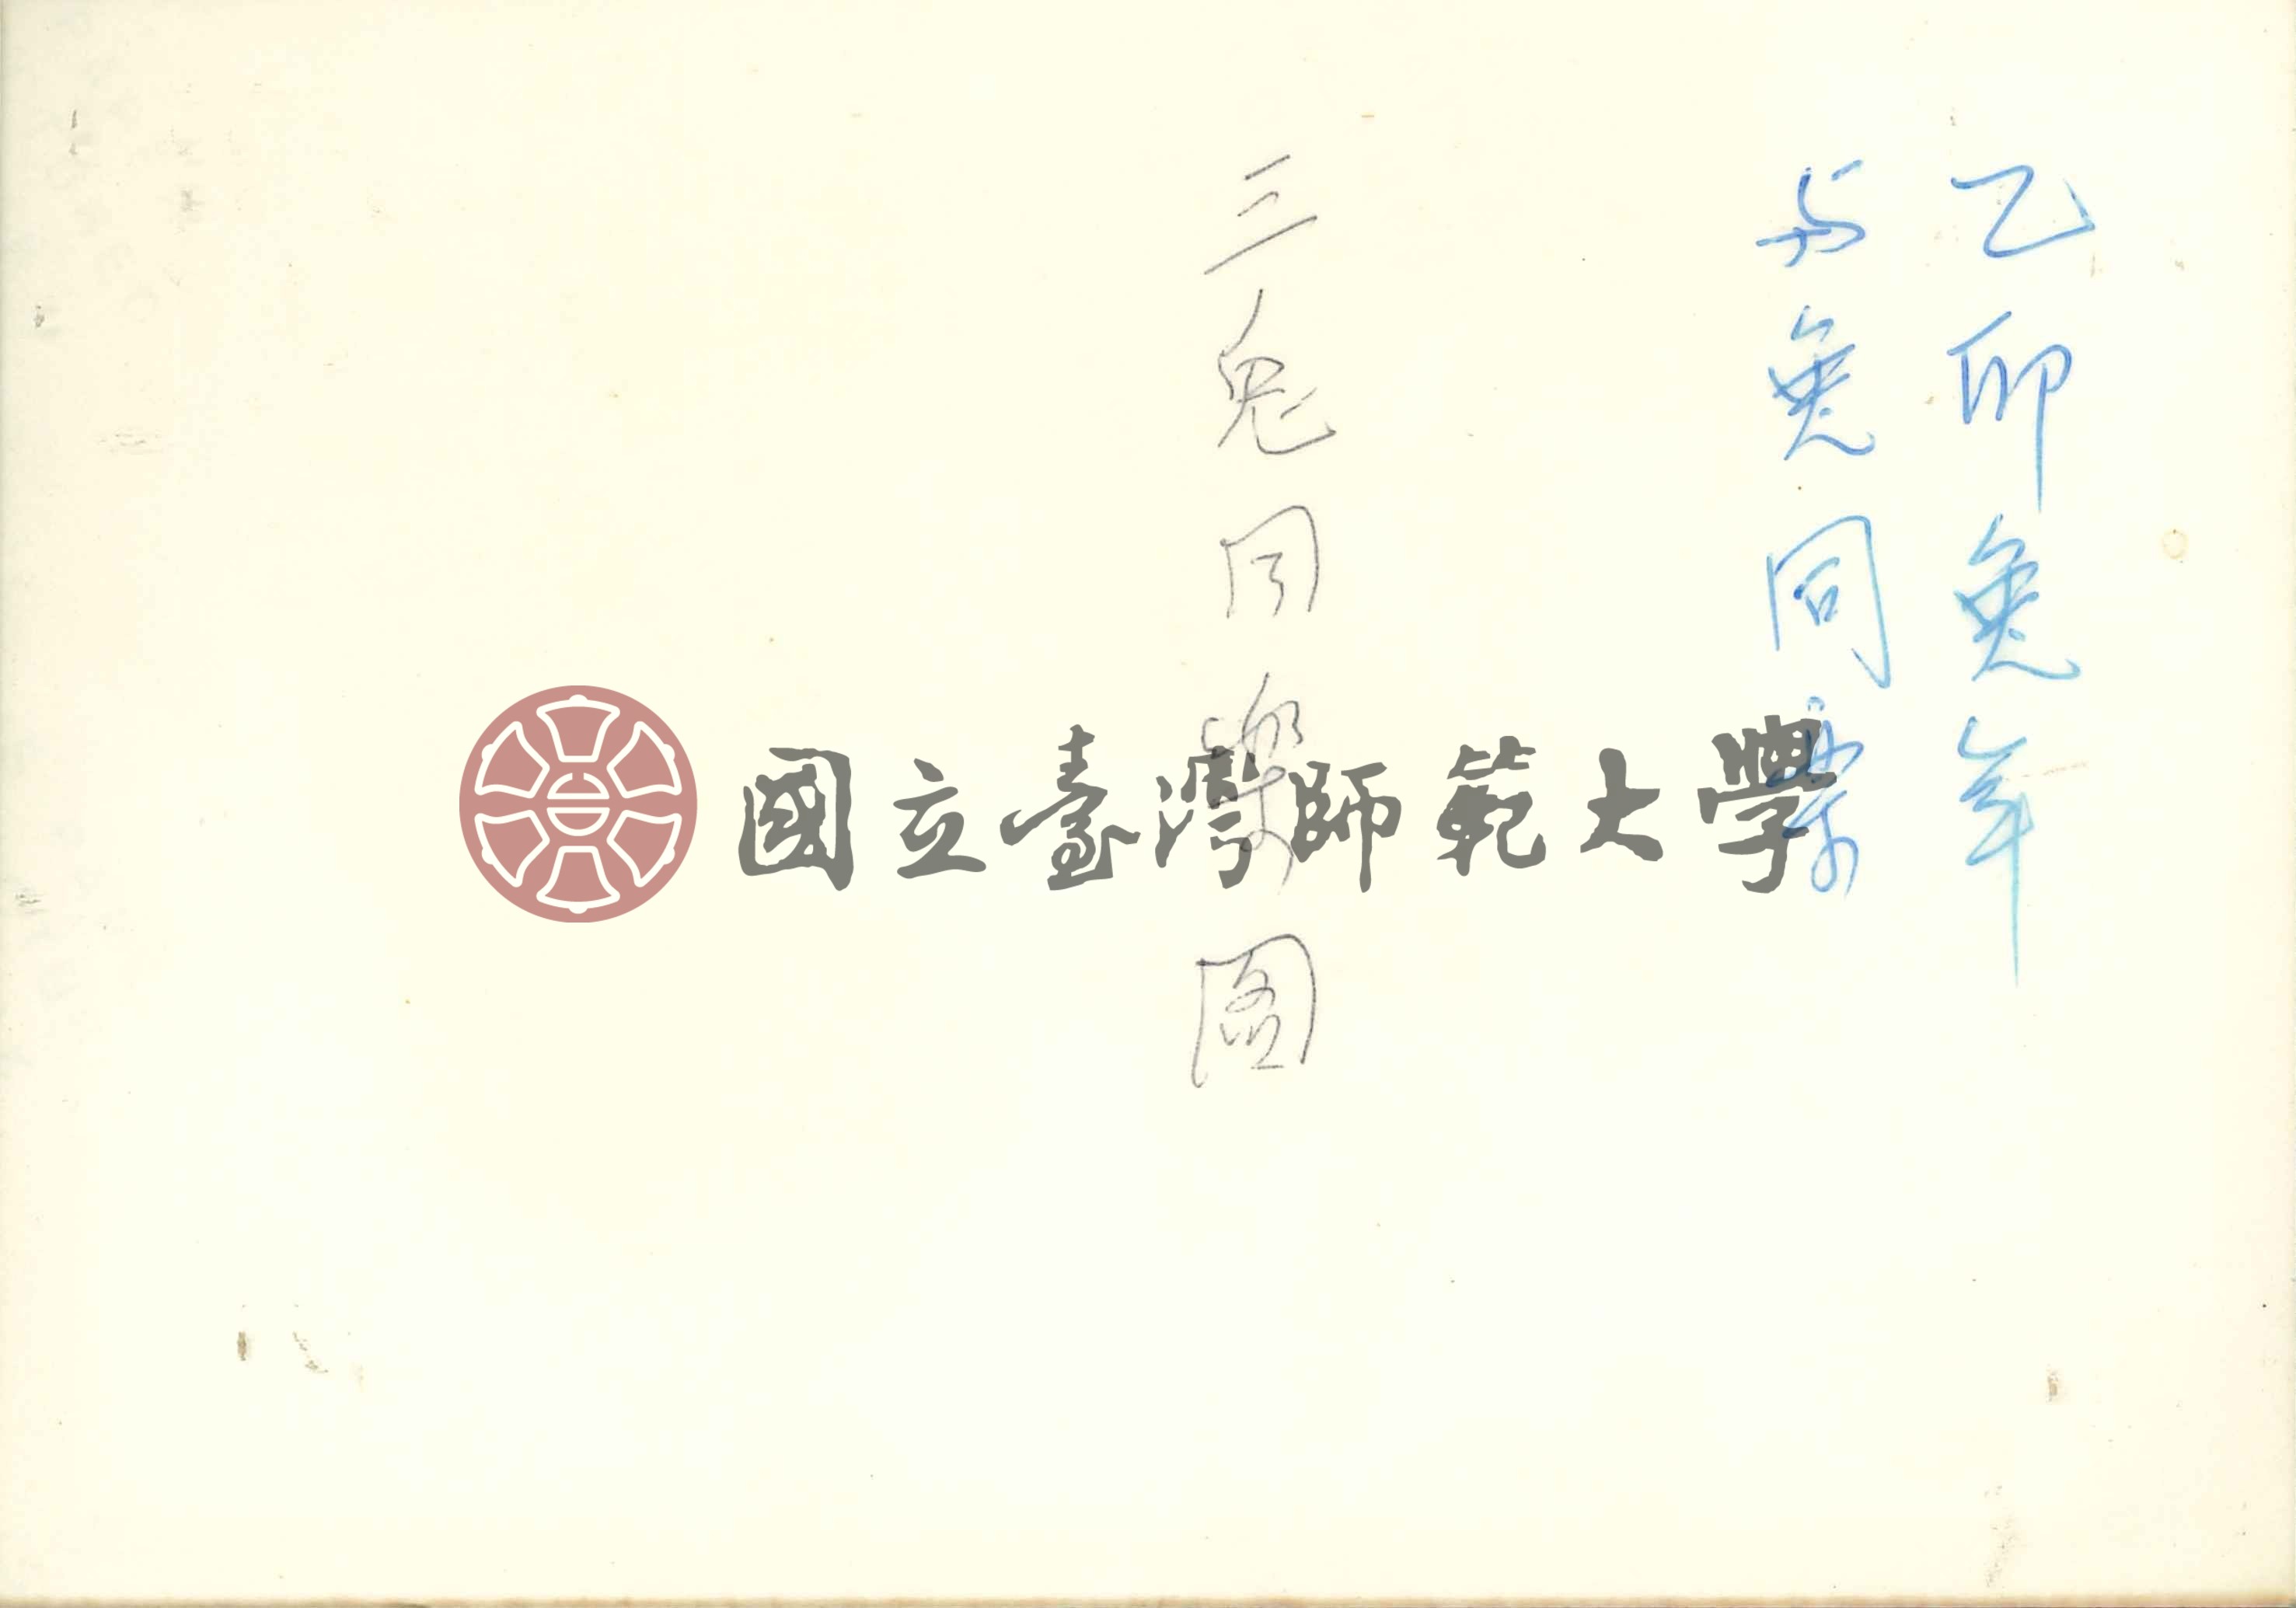 乙卯兔年
与兔同樂
三兔同樂圖
國立臺灣師範大學